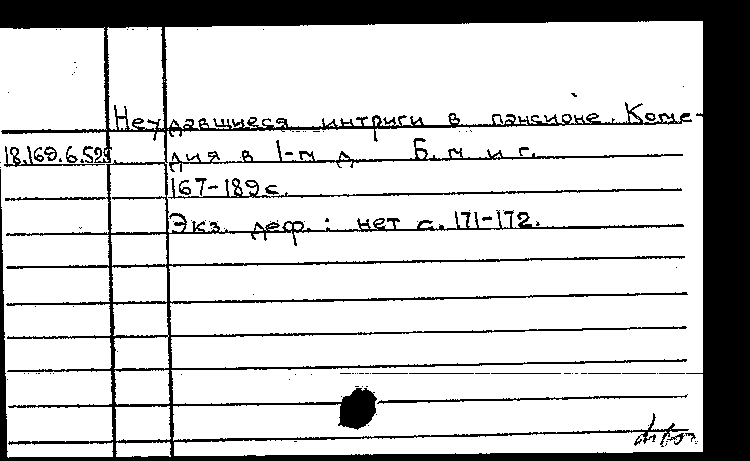 Неудавшиеся интриги в пансионе. Коме-
18.169.6.529. дия в 1-м д. Б. м. и г.
167-189 с.
Экз. деф.: нет с. 171-172.